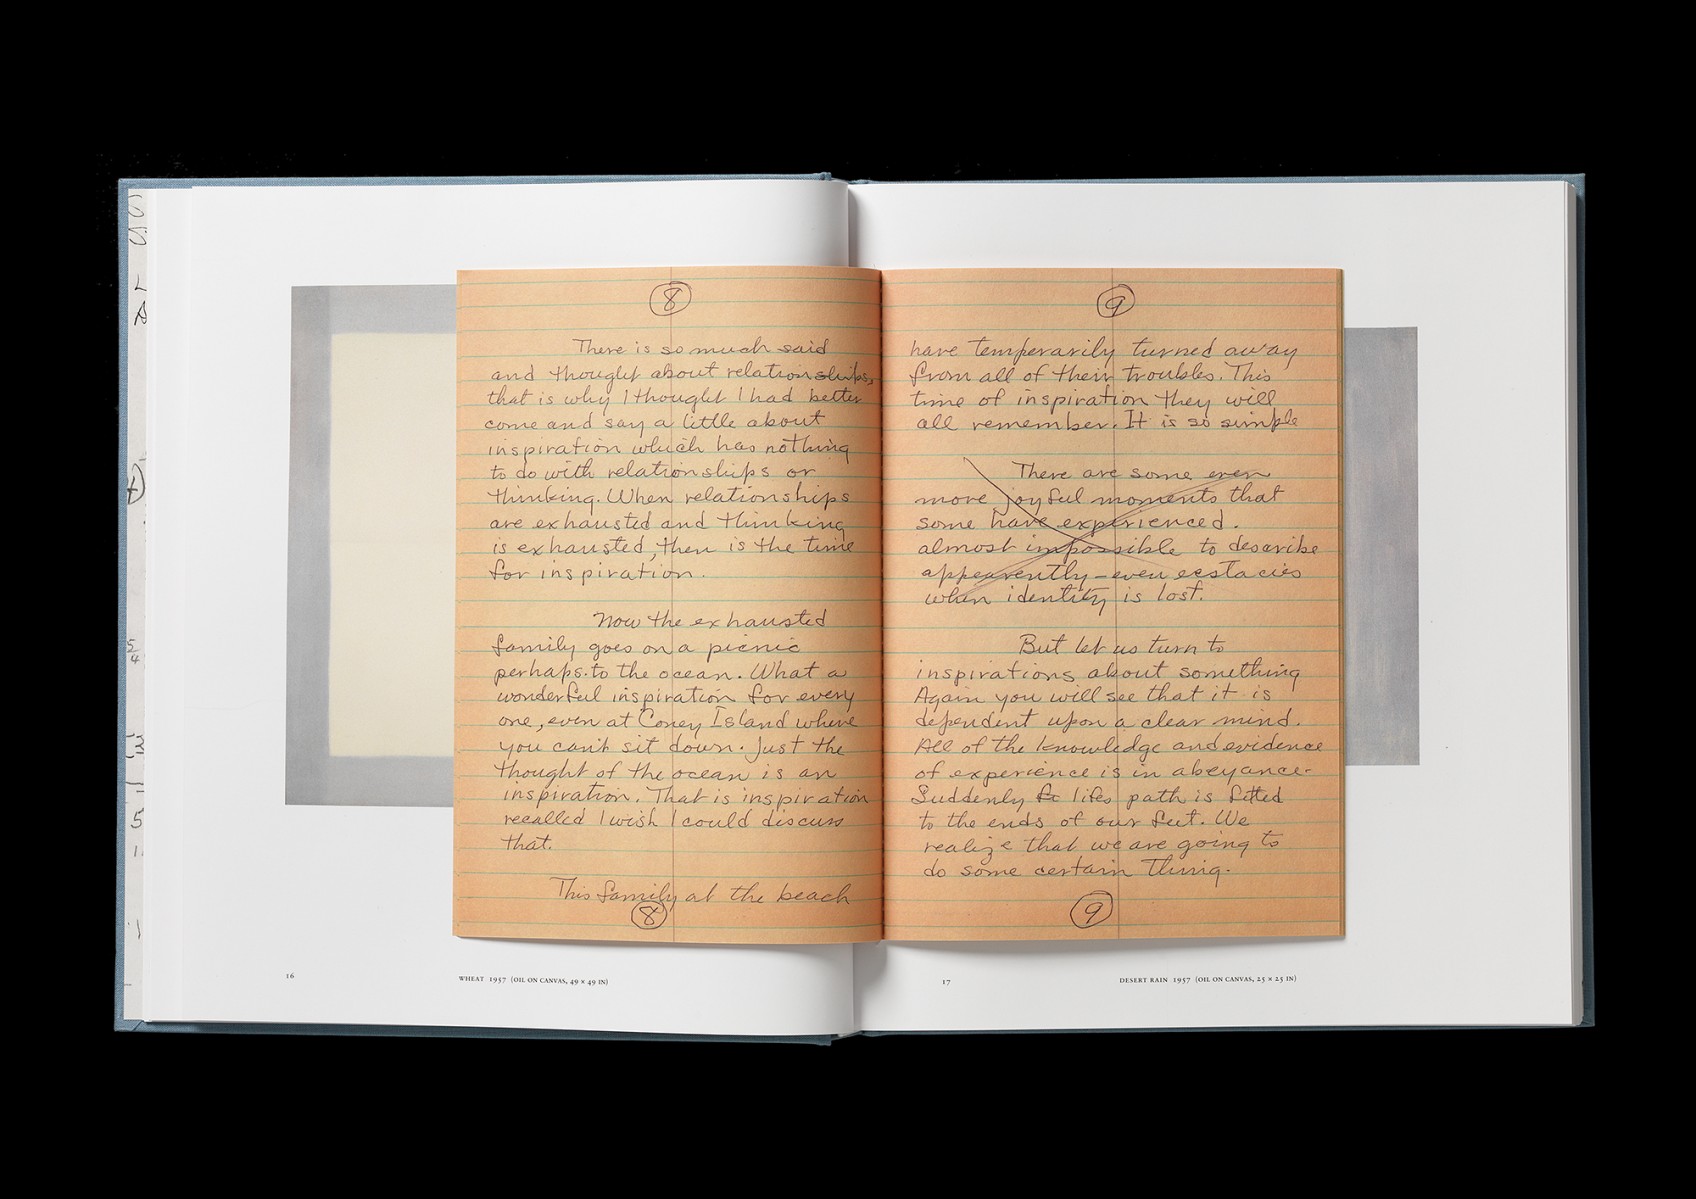 8
There is so much said
and thought about relationships,
that is why I thought I had better
come and say a little about
inspiration which has nothing
to do with relationships or
thinking. When relationships
are exhausted and thinking
is exhausted, then is the time
for inspiration.
Now the exhausted
family goes on a picnic
perhaps to the ocean. What a
wonderful inspiration for every
one, even at Coney Island where
you can't sit down. Just the
thought of the ocean is an
inspiration. That is inspiration
recalled I wish I could discuss
that.
This family at the beach
8
16
WHEAT 1957 (OIL ON CANVAS, 49 × 49 IN)
9
have temperarily turned away
from all of their troubles. This
time of inspiration they will
all remember. It is so simple
There are some even
more joyful moments that
some have experienced.
almost impossible to describe
appearently – even ecstacies
when identity is lost.
But let us turn to
inspirations about something
Again you will see that it is
dependent upon a clear mind.
All of the knowledge and evidence
of experience is in abeyance.
Suddenly lifes path is fitted
to the ends of our feet. We
realize that we are going to
do some certain thing.
9
17
DESERT RAIN 1957 (OIL ON CANVAS, 25 × 25 IN)